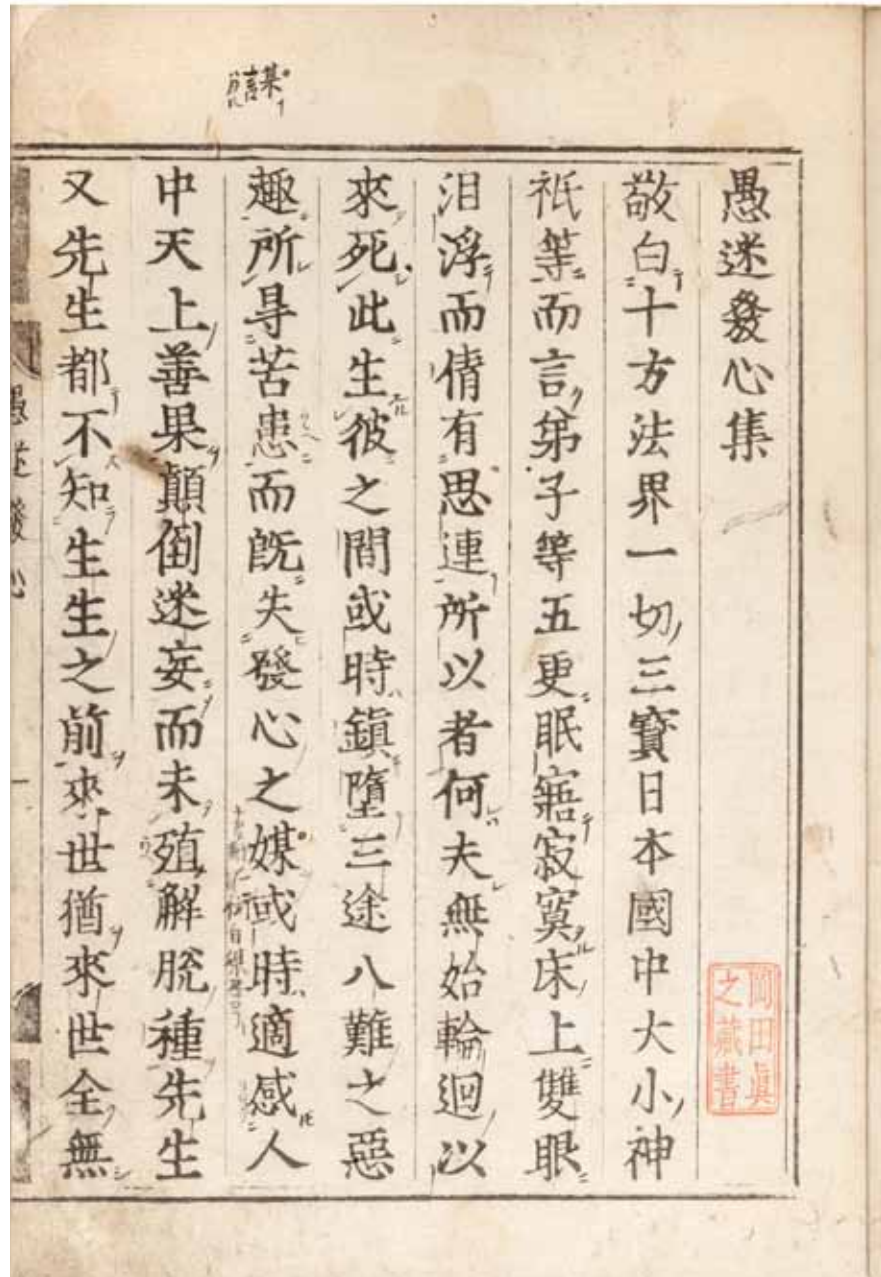 愚迷發心集
敬白十方法界一切三寳日本國中大小神
祇等而言弟子等五更眠寤寂寞床上雙眼
泪浮而倩有思連所以者何夫無始輪迴以
來死此生彼之間或時鎮墮三途八難之惡
趣所㝵苦患而既失發心之媒或時適感人
中天上善果顛倒迷妄而未殖解脫種先生
又先生都不知生生之前來世猶來世全無
愚迷發心
田眞
之藏書